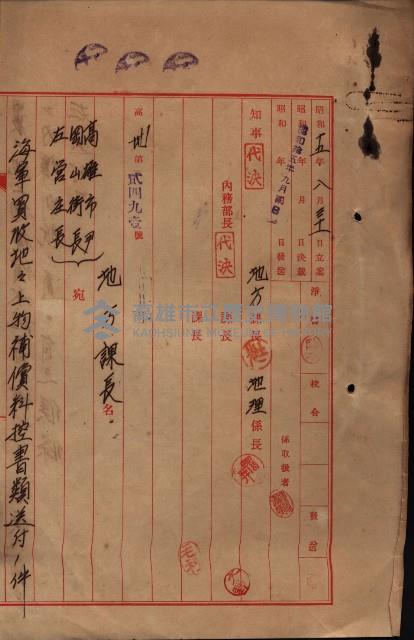 昭和十五年八月三十一日立案
昭和　年　月　日決裁
昭和　年　月　日發送
校合
發送
係取扱者
知事 代決
內務部長 代決
地方課長
課長
課長
地理係長
高地第貳四九壹號
地方課長名
高雄市尹
岡山街長
左營庄長
宛
海軍買收地々上物補償料控書類送付ノ件
高雄市立歷史博物館
KAOHSIUNG MUSEUM OF HISTORY